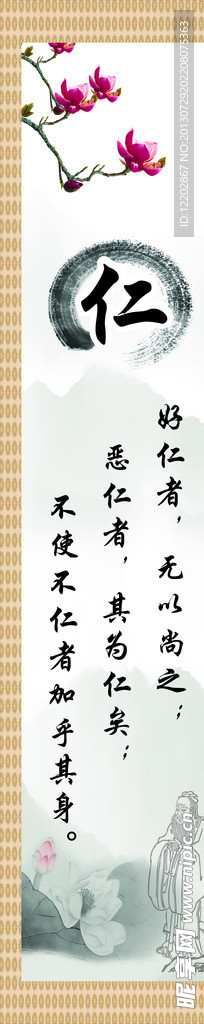 仁
好仁者，无以尚之；
恶仁者，其为仁矣；
不使不仁者加乎其身。
ID:12202867 NO:20130729202208075363
昵享网 www.nipic.cn